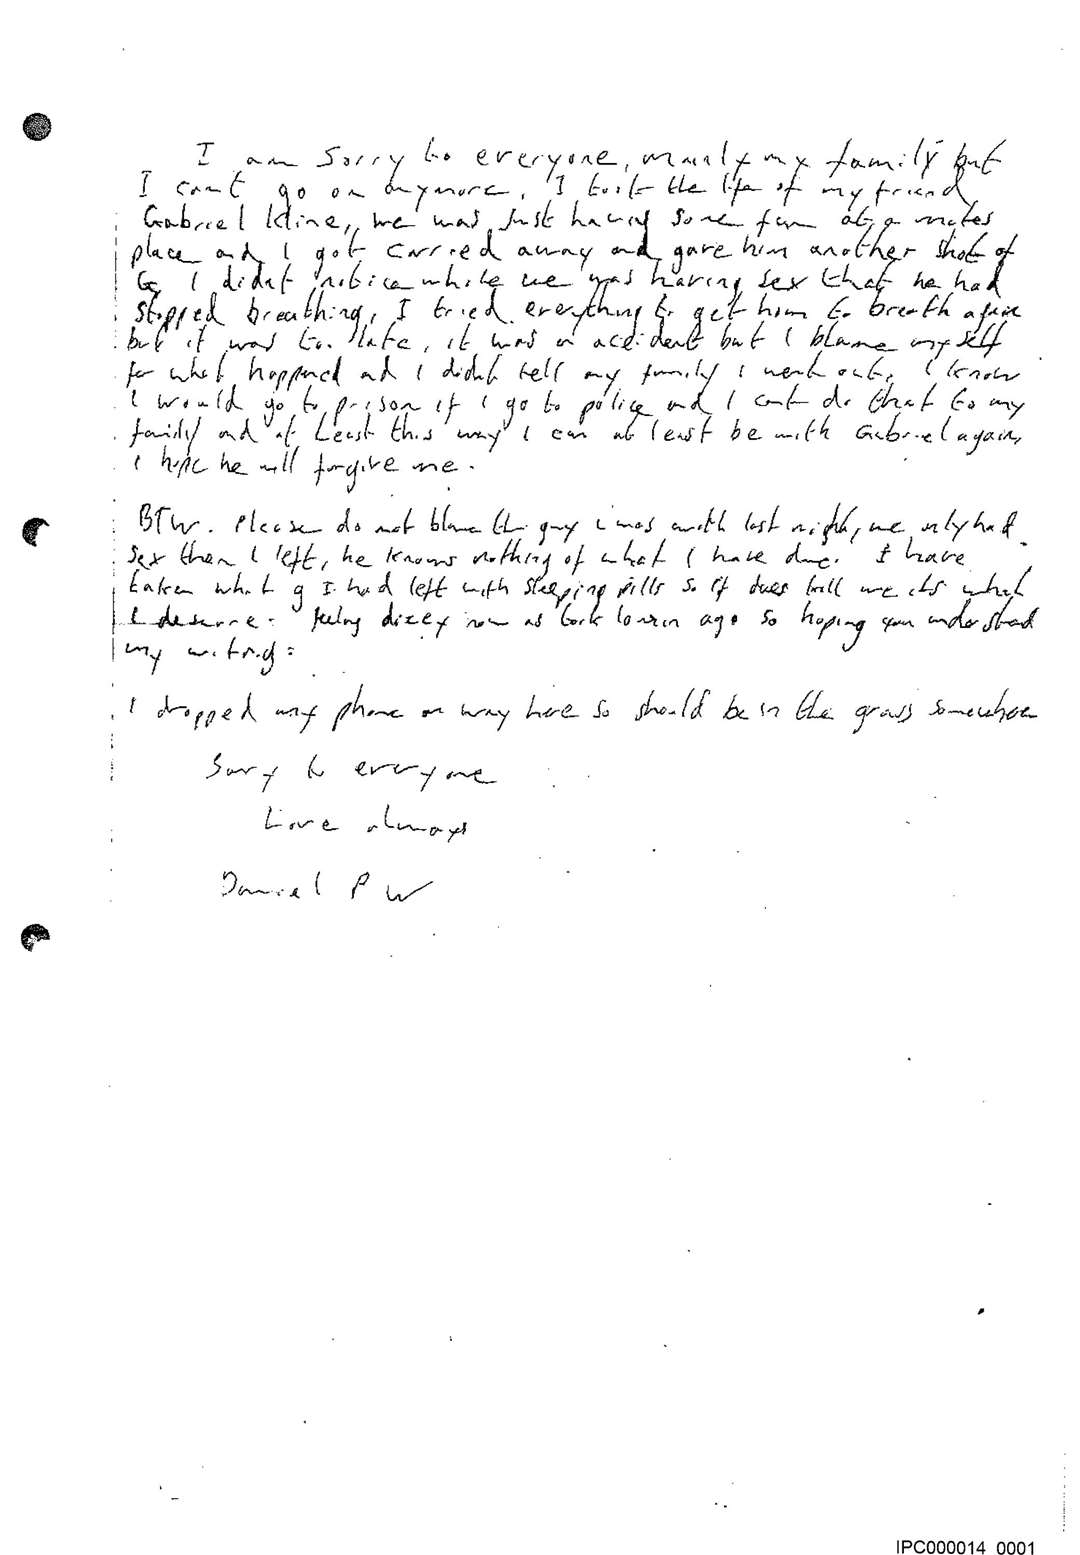 I am sorry to everyone, mainly my family but
I cant go on anymore, I took the life of my friend
Gabriel Kline, we was just having some fun at a mates
place and I got carried away and gave him another shot of
G, I didnt notice while we was having sex that he had
stopped breathing, I tried everything to get him to breath again
but it was to late, it was a accident but I blame myself
for what happened and I didnt tell my family I went out, I know
I would go to prison if I go to police and I cant do that to my
family and at least this way I can at least be with Gabriel again,
I hope he will forgive me.
BTW. Please do not blame the guy I was with last night, we only had
sex then I left, he knows nothing of what I have done. I have
taken what g I had left with sleeping pills so if it does kill me its what
I deserve. feeling dizey now as took 10 min ago so hoping you understand
my writing.
I dropped my phone on way here so should be in the grass somewhere
Sorry to everyone
Love always
Daniel P W
IPC000014_0001